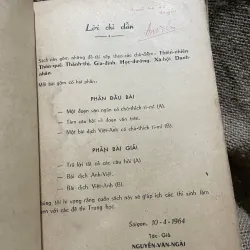 Lời chỉ dẫn
Sách gồm những đề-thi xếp theo các chủ-điểm: Thiên-nhiên
Thôn-quê, Thành-thị, Gia-đình, Học-đường, Xã-hội, Danh-
nhân.
Mỗi bài gồm có hai phần:
PHẦN ĐẦU BÀI
— Một đoạn văn ngoại có chú-thích tỉ-mỉ (A)
— Tám câu hỏi về đoạn văn trên.
— Một bài dịch Việt-Anh có chú-thích tỉ-mỉ (B).
PHẦN BÀI GIẢI
— Trả lời tất cả các câu hỏi (A)
— Bài dịch Anh-Việt.
— Bài dịch Việt-Anh (B).
tôi hi vọng rằng cuốn sách này sẽ giúp ích các thí sinh làm
với các đề thi Trung học.
Saigon, 10-4-1964
Tác Giả
NGUYỄN-VĂN-NGẢI